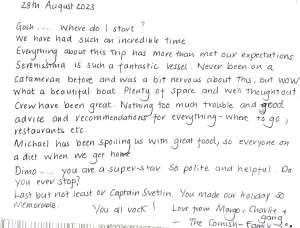 28th August 2023
Gosh .... Where do I start?
We have had such an incredible time.
Everything about this trip has more than met our expectations
Serenissima is such a fantastic vessel. Never been on a
Catameran before and was a bit nervous about this, but WOW
what a beautiful boat. Plenty of space and well thoughtout
Crew have been great. Nothing too much trouble and good
advice and recommendations for everything - where to go,
restaurants etc.
Michael has been spoiling us with great food, so everyone on
a diet when we get home
Dimo .... you are a super-star. So polite and helpful. Do
you ever stop?
Last but not least or Captain Svetlin. You made our holiday so
memorable.
You all rock! Love from Margo, Charlie +
gang
- The Cornish - Family